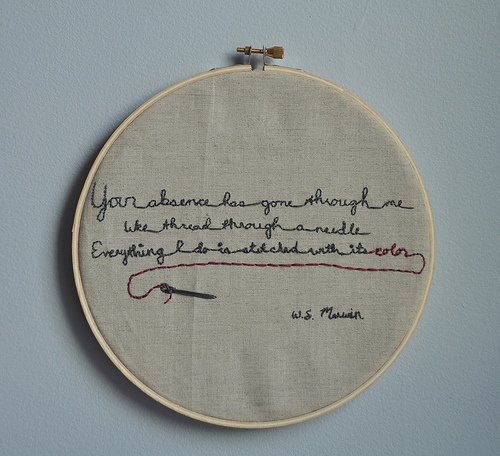 Your absence has gone through me
like thread through a needle
Everything I do is stitched with its color
W.S. Merwin